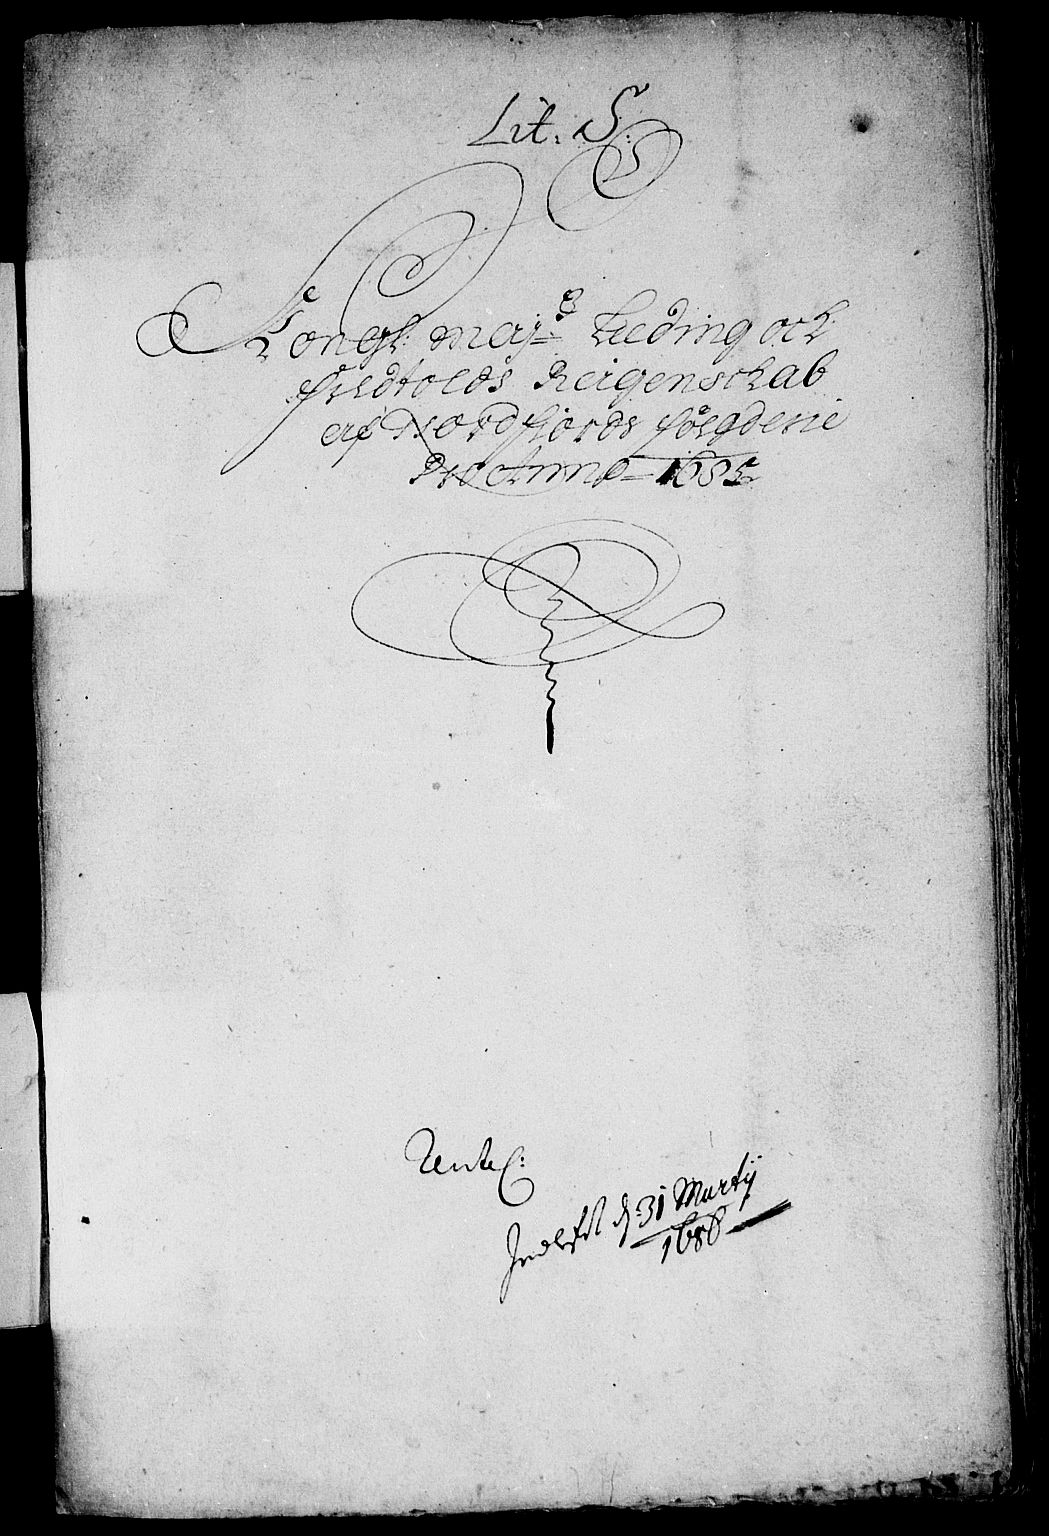 Lit. S:
Kongl: May:ts Leding och
fredtolds Reigenschab
af Nordfiords fougderie
Pro Anno 1685
Indleft d: 31 Martij
1686